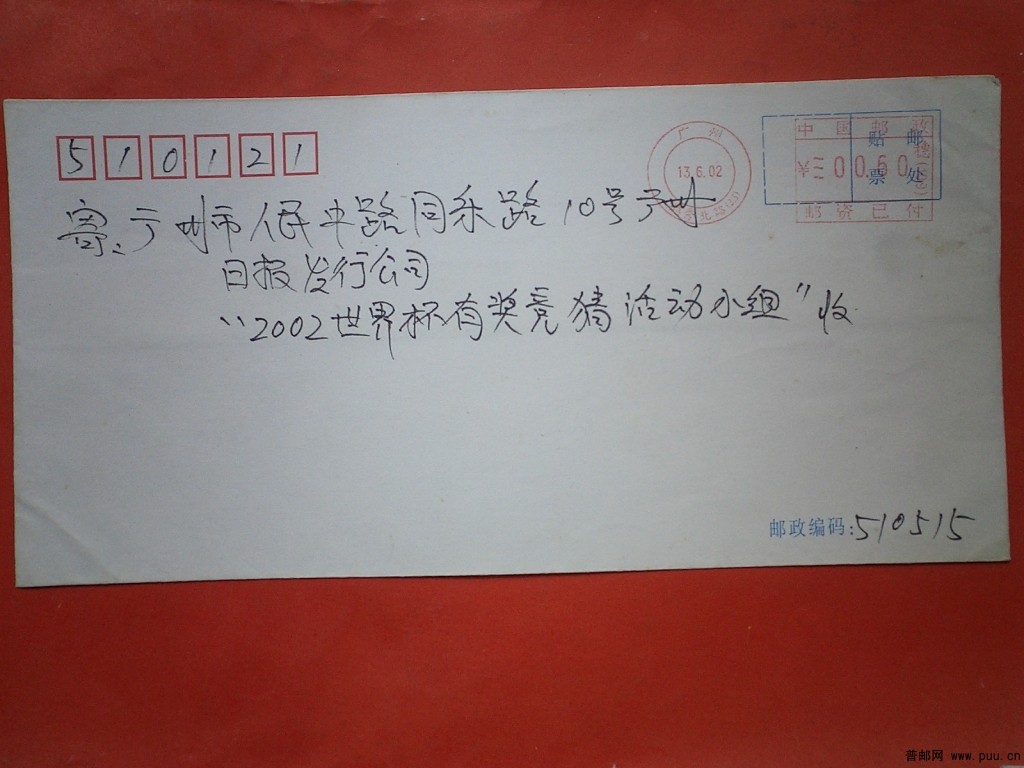 510121
寄:广州市人民中路同乐路10号广州
日报发行公司
“2002世界杯有奖竞猜活动小组”收
广州
13.6.02
中国邮政
¥ 0060
邮资已付
贴邮
票处
邮政编码:510515
普邮网 www.puu.cn